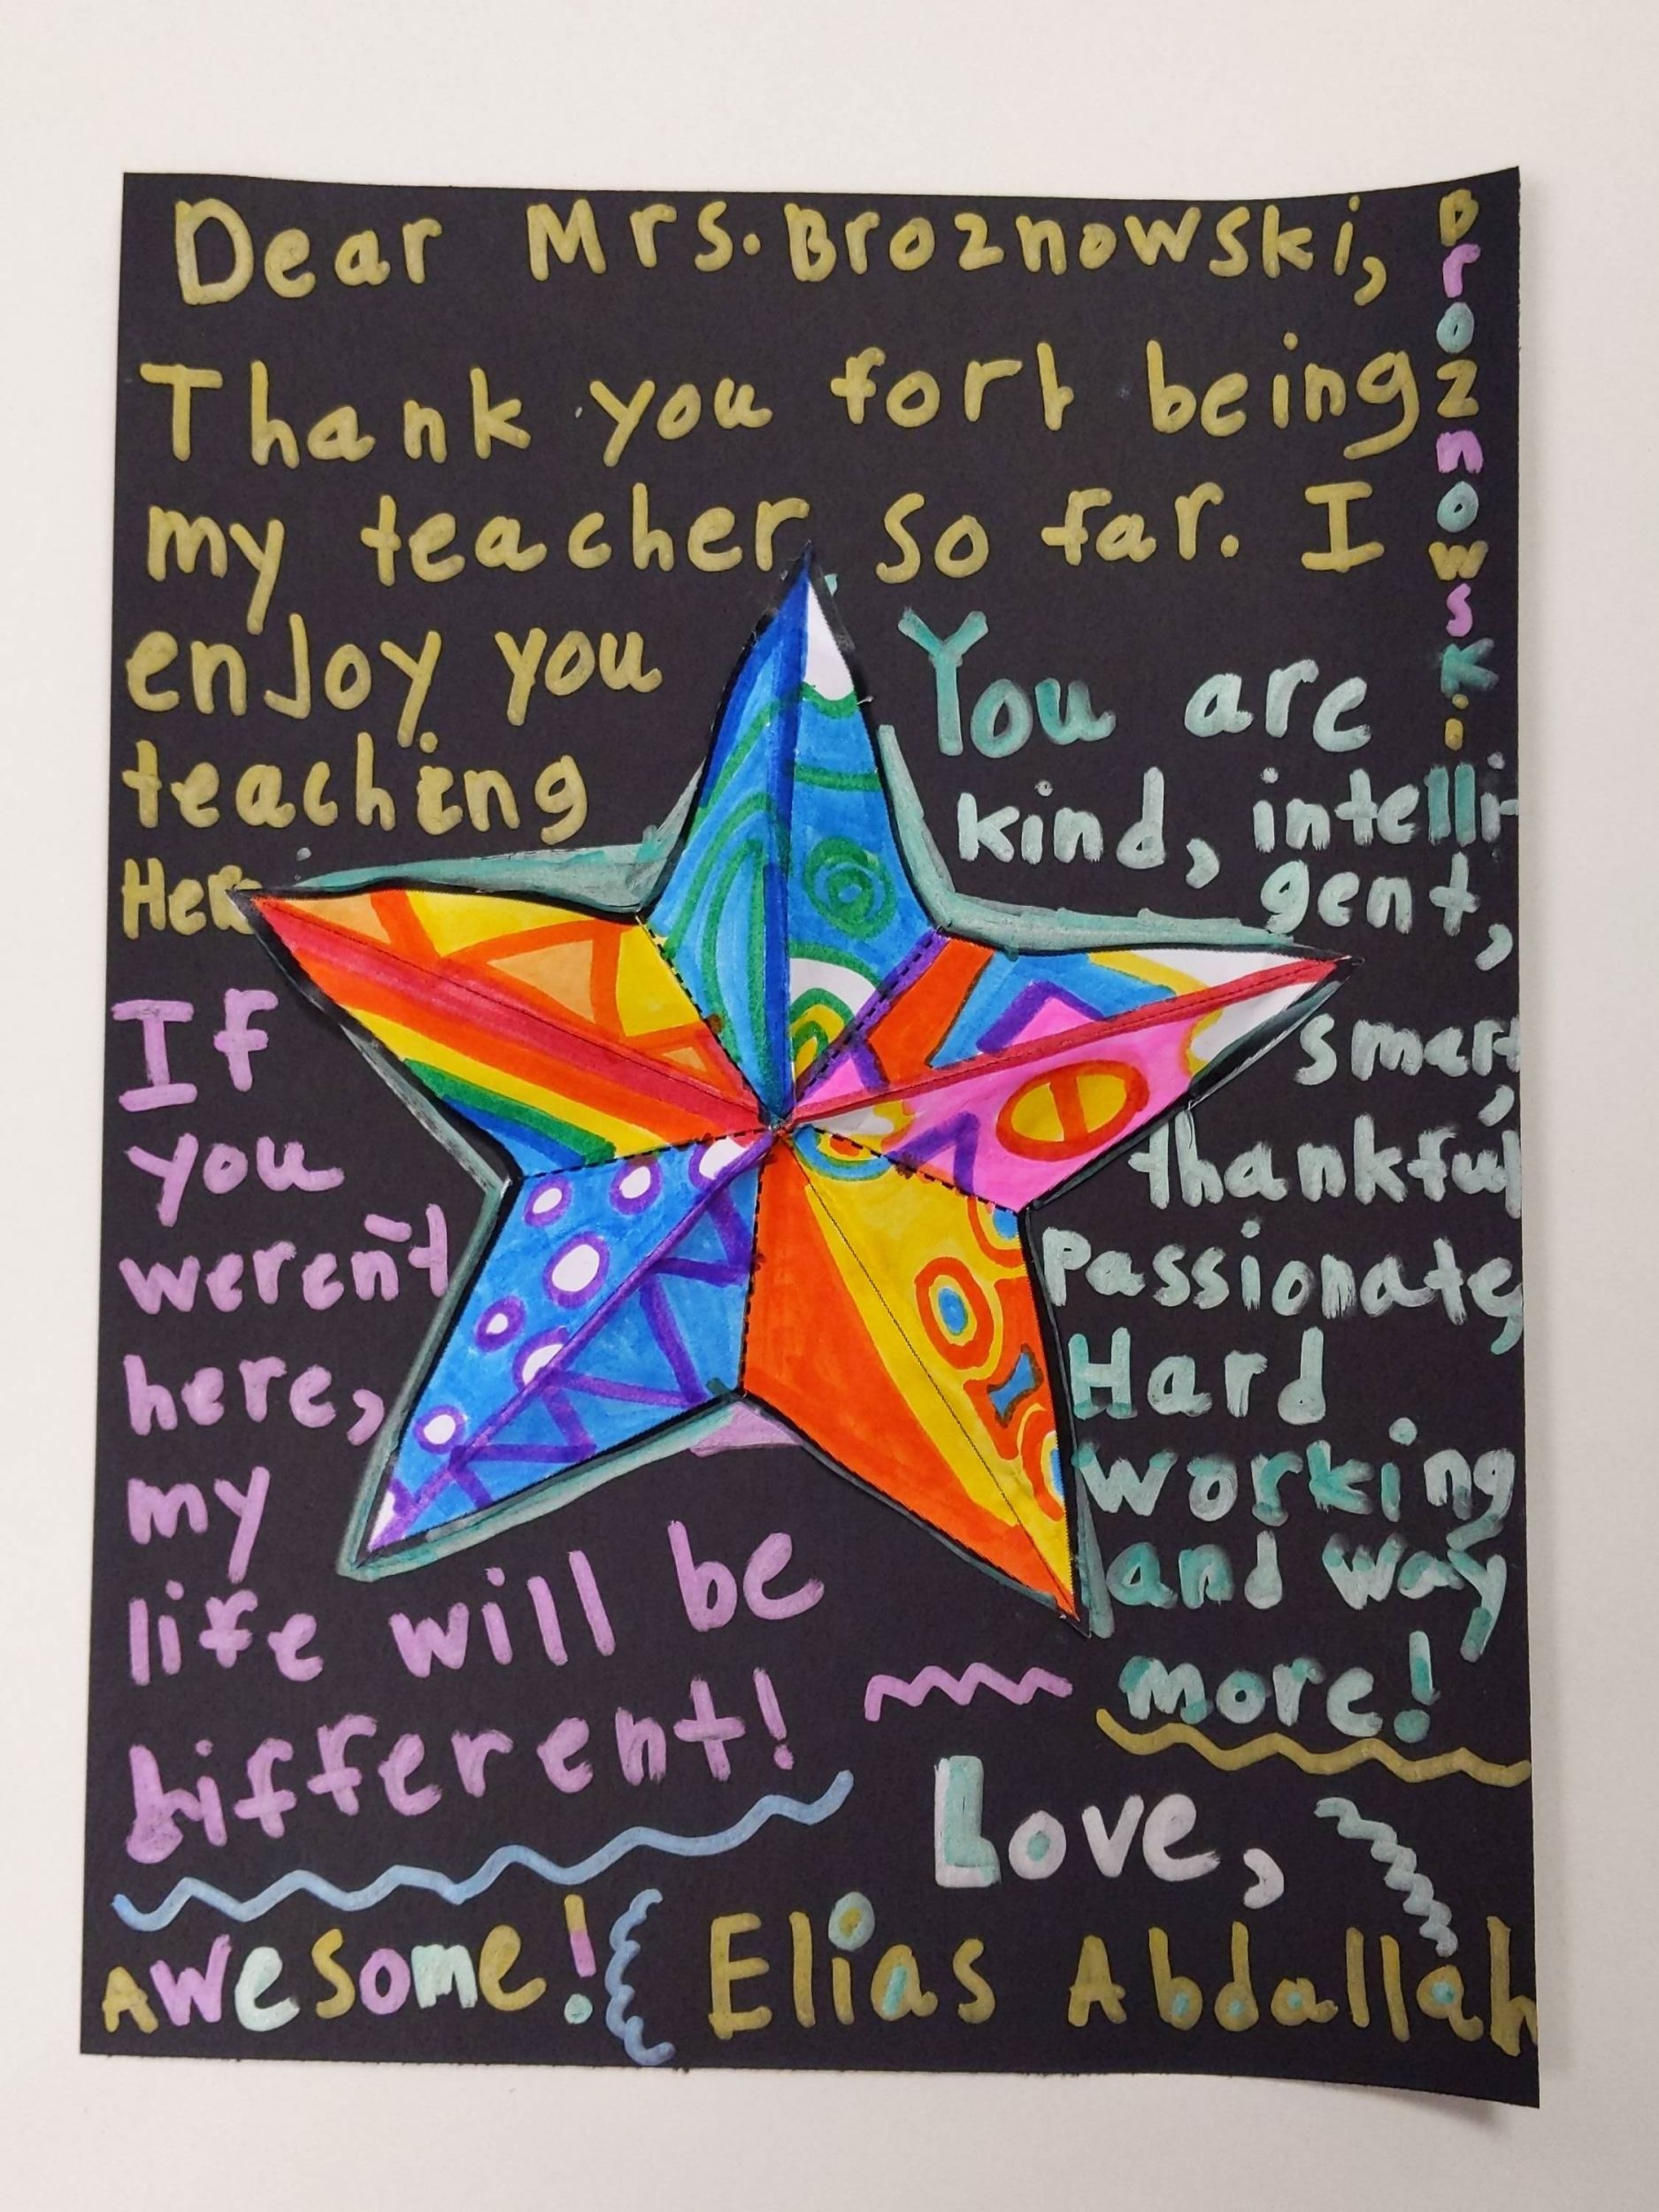 Dear Mrs. Broznowski,
Thank you fort being
my teacher so far. I
enjoy you
teaching
Here
If
you
weren't
here,
my
life will be
different!
Awesome!
You are
kind, intelli-
gent,
smart,
thankful
Passionate,
Hard
working
and way
more!
Love,
Elias Abdallah
Broznowski